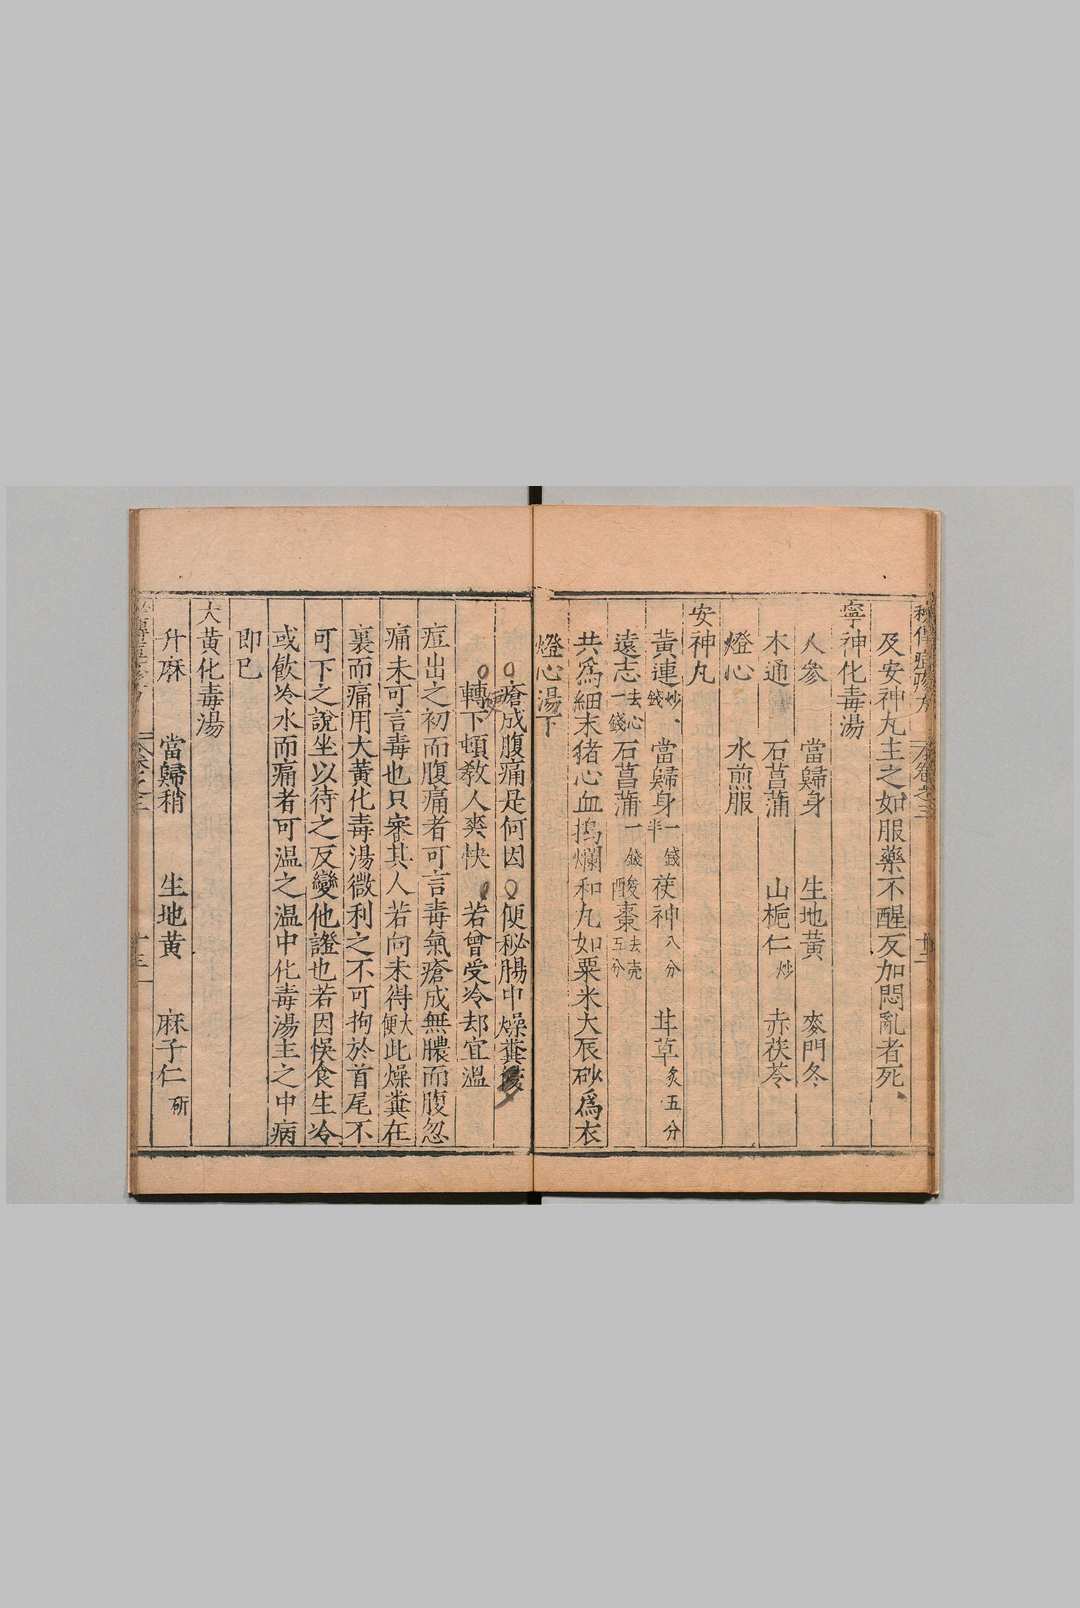 及安神丸主之如服藥不醒反加悶亂者死
寧神化毒湯
人參 當歸身 生地黃 麥門冬
木通 石菖蒲 山梔仁炒 赤茯苓
燈心 水煎服
安神丸
黃連炒一錢 當歸身一錢半 茯神八分 甘草炙五分
遠志去心一錢 石菖蒲一錢 酸棗去壳五分
共爲細末猪心血搗爛和丸如粟米大辰砂爲衣
燈心湯下
瘡成腹痛是何因 便秘腸中燥糞
轉下頓教人爽快 若曾受冷却宜溫
痘出之初而腹痛者可言毒氣瘡成無膿而腹忽
痛未可言毒也只審其人若向未得此燥糞在
裏而痛用大黃化毒湯微利之不可拘於首尾不
可下之說坐以待之反變他證也若因悞食生冷
或飲冷水而痛者可溫之溫中化毒湯主之中病
即已
大黃化毒湯
升麻 當歸稍 生地黃 麻子仁研